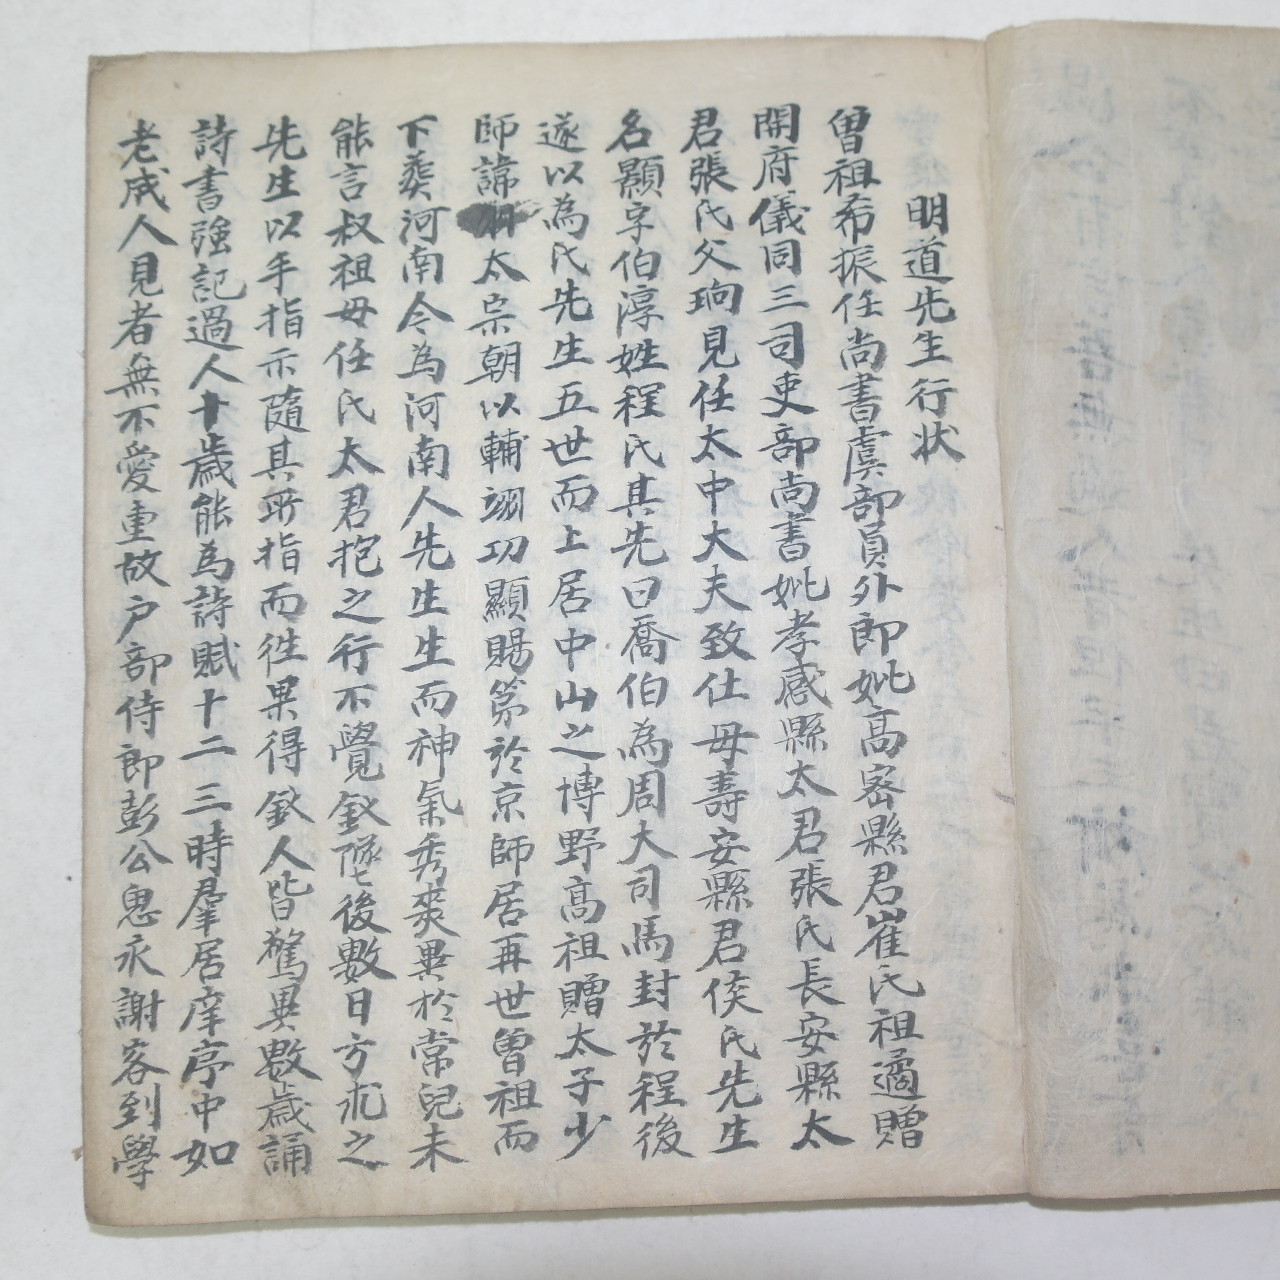 明道先生行状
曾祖希振任尚書虞部員外郎妣高密縣君崔氏祖遹贈
開府儀同三司吏部尚書妣孝感縣太君張氏長安縣太
君張氏父珦見任太中大夫致仕母壽安縣君侯氏先生
名顯字伯淳姓程氏其先曰喬伯為周大司馬封於程後
遂以為氏先生五世而上居中山之博野高祖贈太子少
師諱羽太宗朝以輔翊功顯賜第於京師居再世曾祖而
下葬河南今為河南人先生生而神氣秀爽異於常兒未
能言叔祖母任氏太君抱之行不覺釵墜後數日方求之
先生以手指示隨其所指而徃果得釵人皆驚異數歲誦
詩書強記過人十歲能為詩賦十二三時羣居庠序中如
老成人見者無不愛重故户部侍郎彭公思永謝客到學